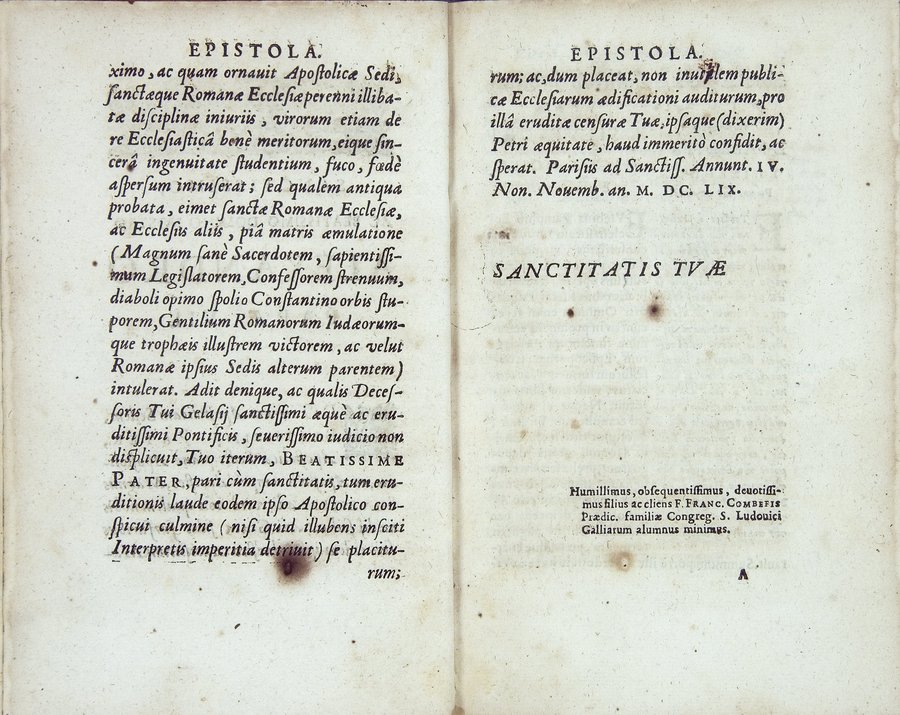 EPISTOLA.
ximo, ac quam ornauit Apostolicæ Sedi,
sanctæque Romanæ Ecclesiæ perenni illiba-
tæ disciplinæ iniuriis, virorum etiam de
re Ecclesiasticâ benè meritorum, eique sin-
cerâ ingenuitate studentium, fuco, fœdè
aspersum intruserat; sed qualem antiqua
probata, eimet sanctæ Romanæ Ecclesiæ,
ac Ecclesiis aliis, piâ matris æmulatione
(Magnum sanè Sacerdotem, sapientissi-
mum Legislatorem, Confessorem strenuum,
diaboli opimo spolio Constantino orbis stu-
porem, Gentilium Romanorum Iudæorum-
que trophæis illustrem victorem, ac velut
Romanæ ipsius Sedis alterum parentem)
intulerat. Adit denique, ac qualis Deces-
soris Tui Gelasij sanctissimi æquè ac eru-
ditissimi Pontificis, seuerissimo iudicio non
displicuit, Tuo iterum, BEATISSIME
PATER, pari cùm sanctitatis, tum eru-
ditionis laude eodem ipso Apostolico con-
spicui culmine (nisi quid illubens insciti
Interpretis imperitia detriuit) se placitu-
rum;
EPISTOLA.
rum; ac, dum placeat, non inutilem publi-
cæ Ecclesiarum ædificationi auditurum, pro
illâ eruditæ censuræ Tuæ, ipsaque (dixerim)
Petri æquitate, haud immeritò confidit, ac
sperat. Parisiis ad Sanctiss. Annunt. IV.
Non. Nouemb. an. M. DC. LIX.
SANCTITATIS TVÆ
Humillimus, obsequentissimus, deuotissi-
mus filius ac cliens F. FRANC. COMBEFIS
Prædic. familiæ Congreg. S. Ludouici
Galliarum alumnus minimus.
A